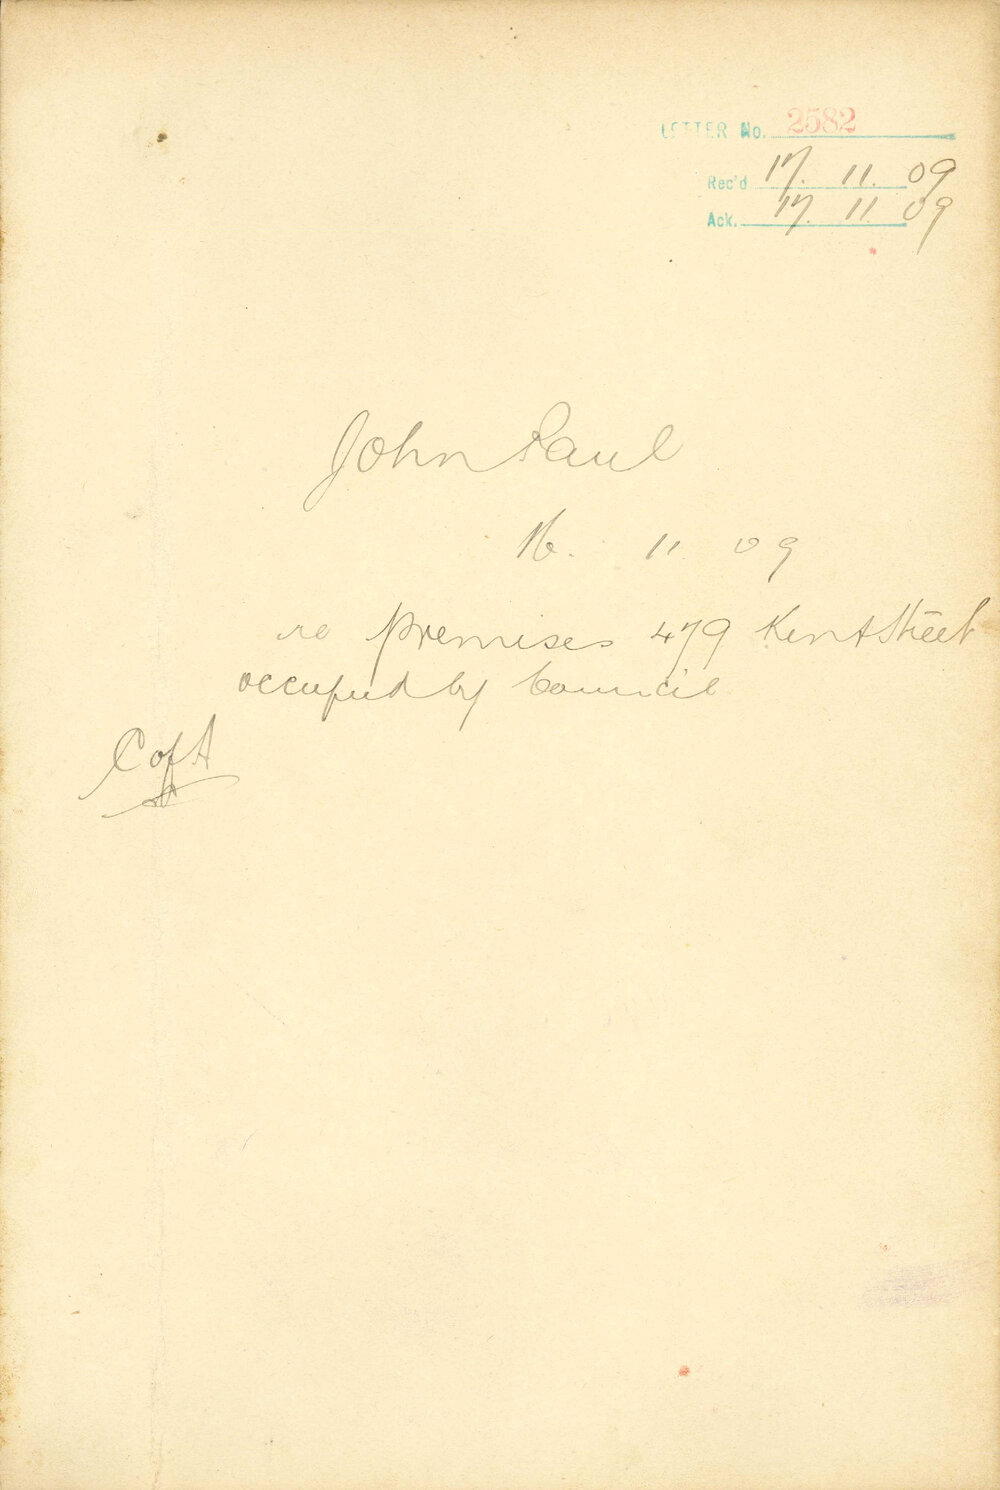 LETTER No. 2582
Rec'd 17. 11. 09
Ack. 17. 11. 09
John Paul
16. 11. 09
re premises 479 Kent Street
occupied by Council
C of A